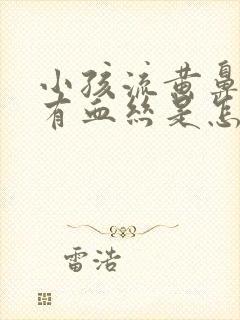 小孩流黄鼻
有血丝是怎
雷浩